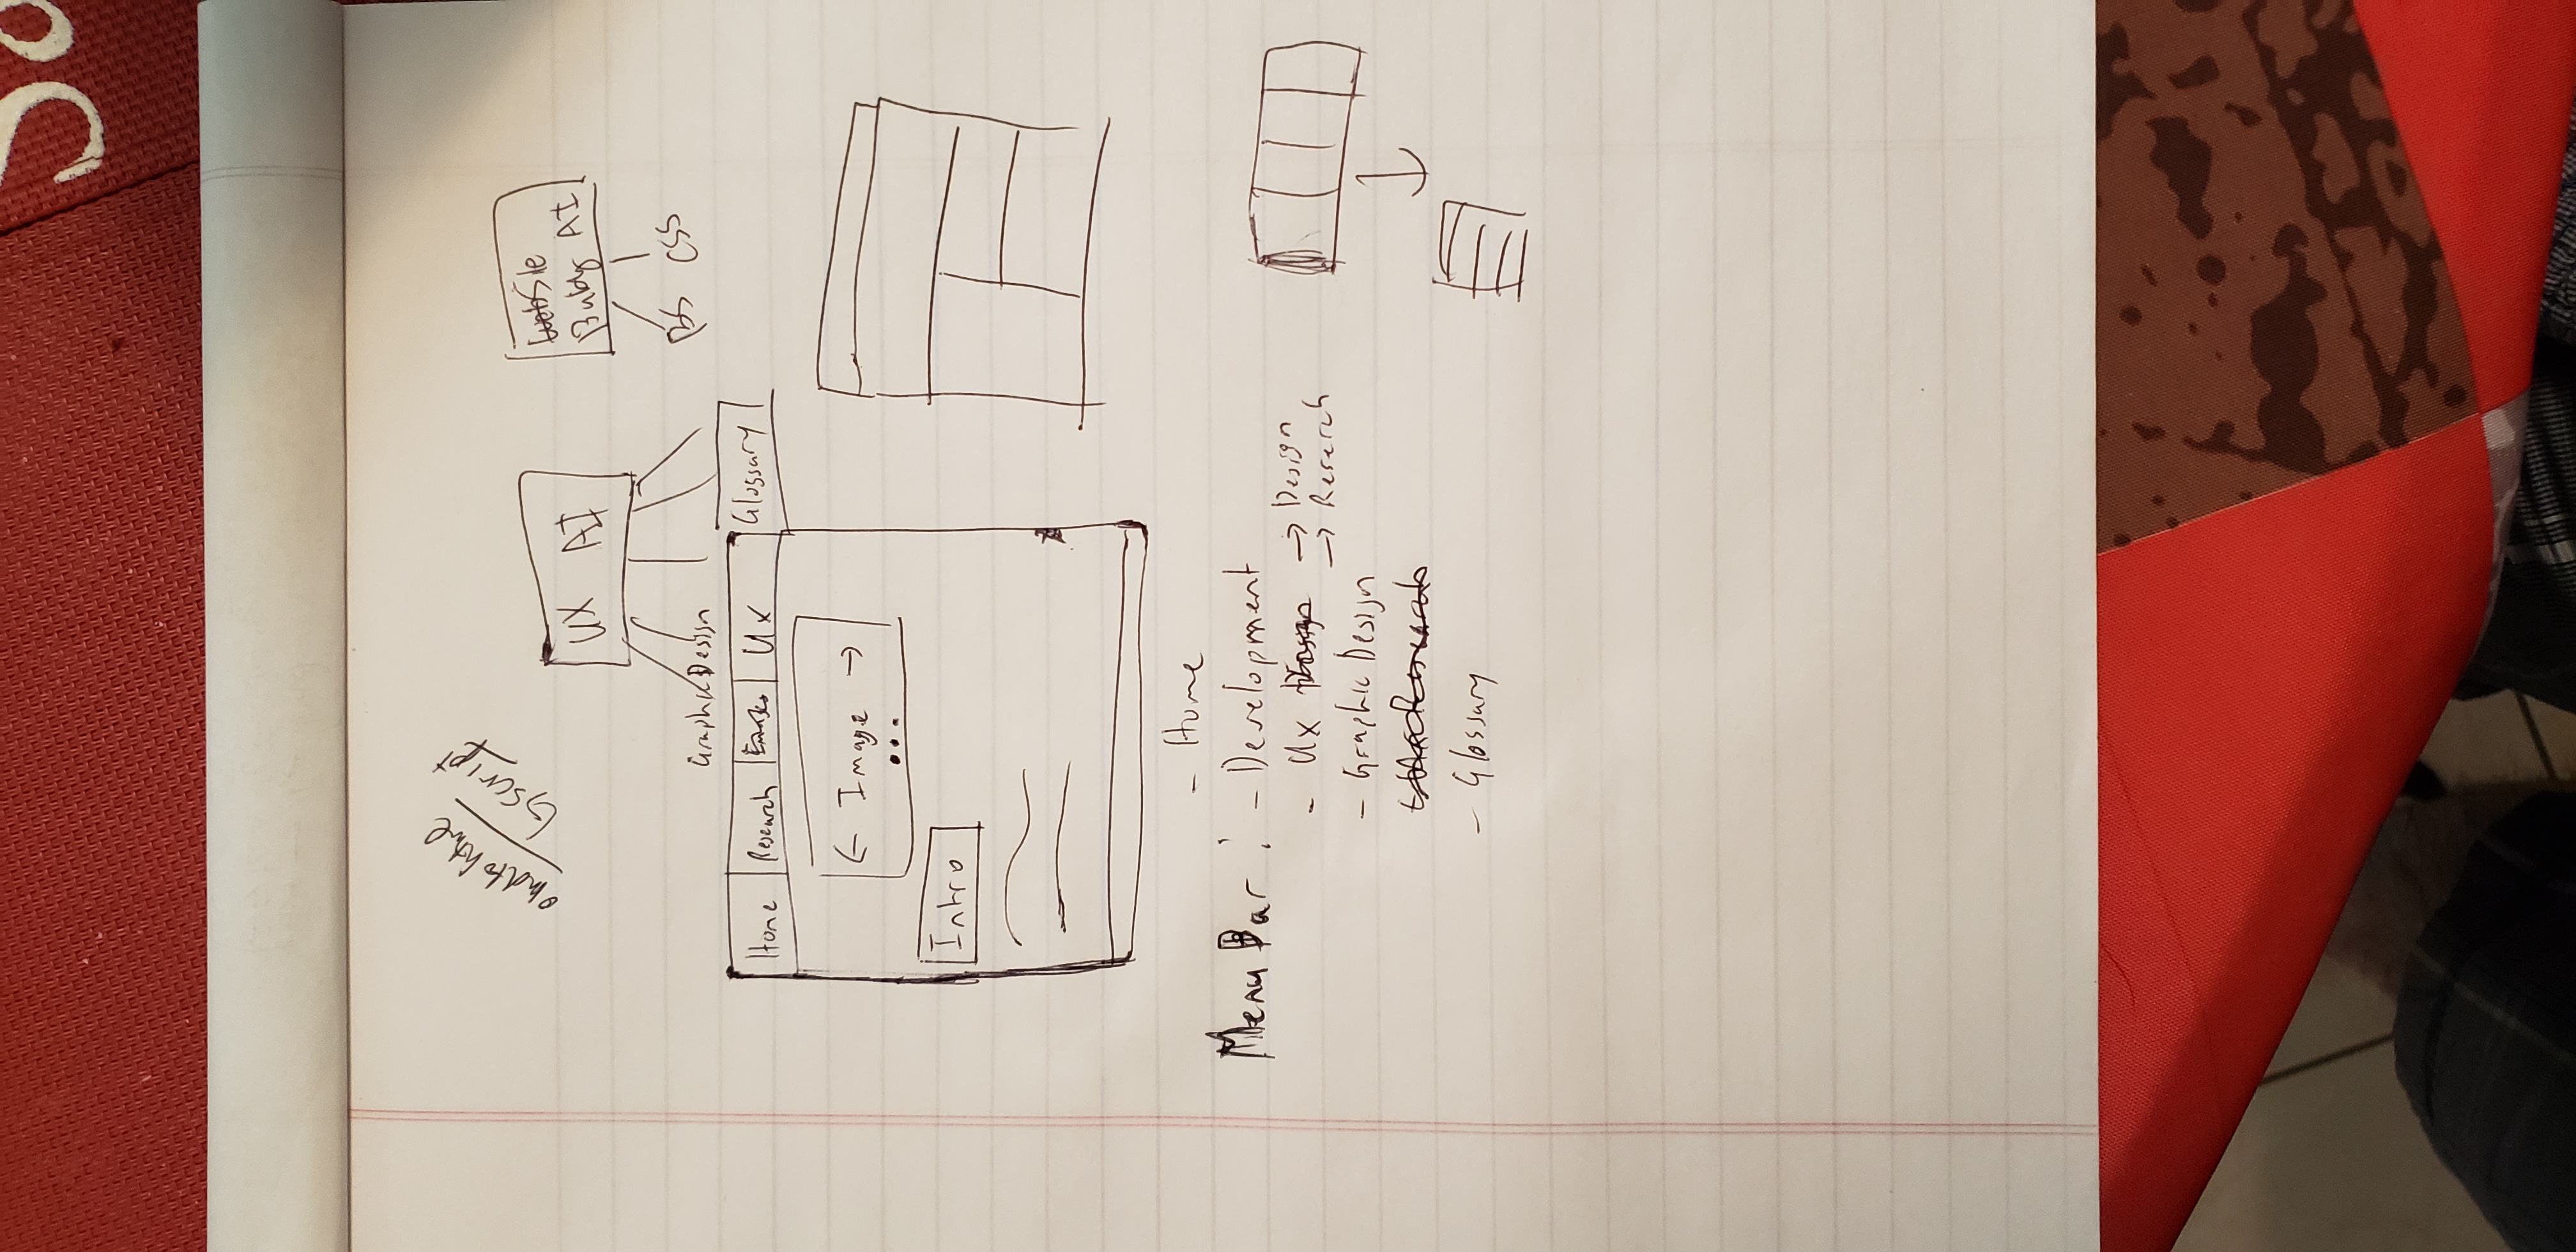 So
omdtohtml
↳ script
UX AI
Website
AI
BS CSS
Graphic Design
Home Research UX Glossary
← Image →
Intro
- Home
Menu Bar : - Development
- UX Design → Design
→ Reserch
- Graphic Design
- Glossary